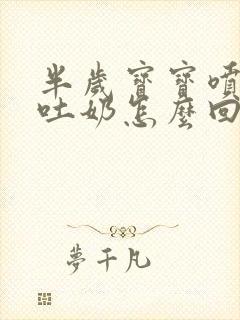 半歲寶寶噴
吐奶怎麼回
夢千凡